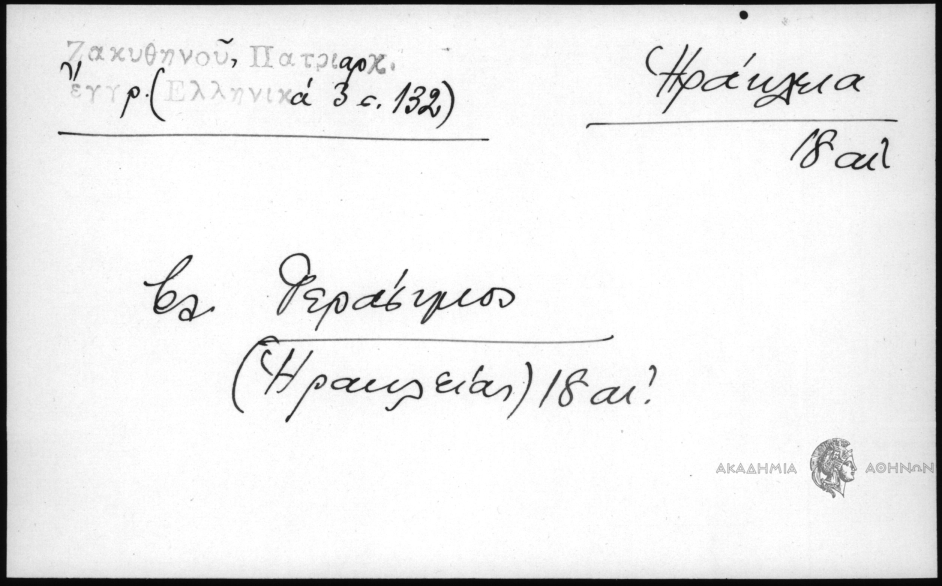 Ζακυθηνοῦ, Πατριαρχ.
ἔγγρ. (Ἑλληνικά 3 σ. 132)
Ἡράκλεια
18 αι!
βλ. Γεράσιμος
(Ἡρακλείας) 18 αι!
ΑΚΑΔΗΜΙΑ ΑΘΗΝΩΝ